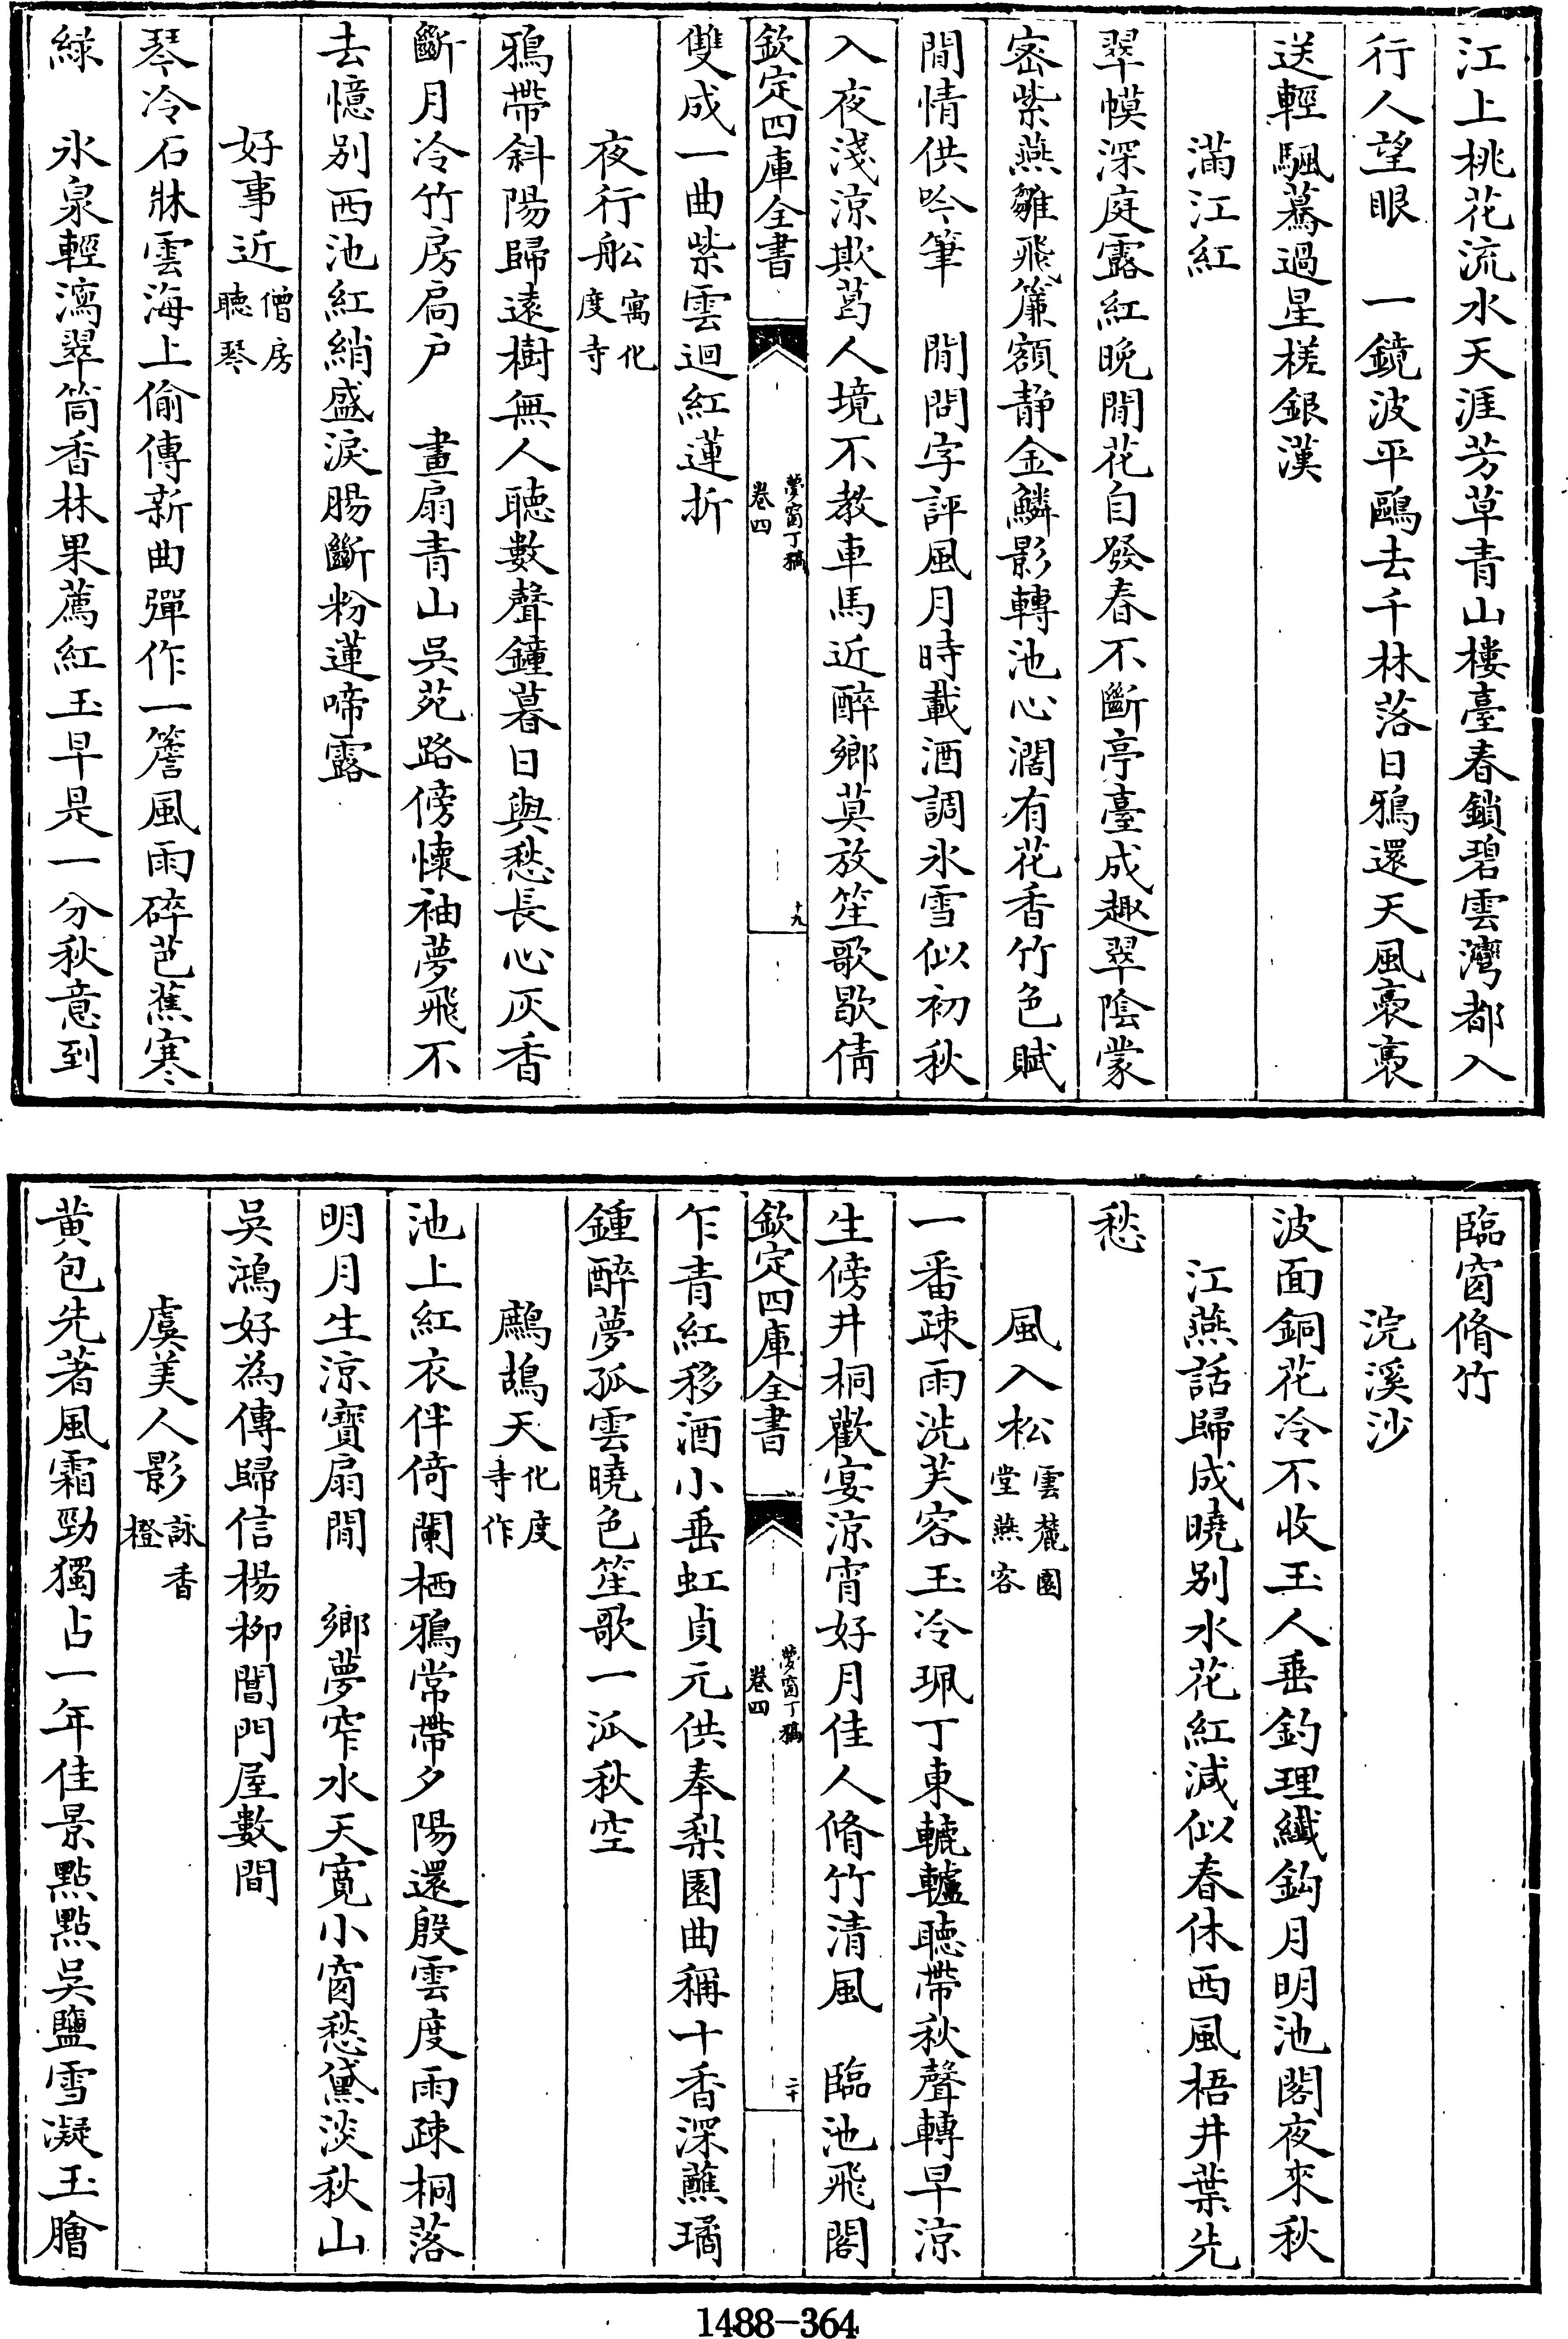 江上桃花流水天涯芳草青山樓臺春鎖碧雲灣都入
行人望眼　一鏡波平鷗去千林落日鴉還天風裊裊
送輕颿驀過星槎銀漢
滿江紅
翠幙深庭露紅晚閒花自發春不斷亭臺成趣翠陰蒙
密紫燕雛飛簾額靜金鱗影轉池心濶有花香竹色賦
閒情供吟筆　閒問字評風月時載酒調氷雪似初秋
入夜淺涼欺葛人境不教車馬近醉鄉莫放笙歌歇倩
欽定四庫全書
夢窗丁稿
卷四
十九
雙成一曲紫雲迴紅蓮折
夜行舩寓化度寺
鴉帶斜陽歸遠樹無人聽數聲鐘暮日與愁長心灰香
斷月冷竹房扃戶　畫扇青山吳苑路傍懷袖夢飛不
去憶別西池紅綃盛淚腸斷粉蓮啼露
好事近僧房聽琴
琴冷石牀雲海上偷傳新曲彈作一簷風雨碎芭蕉寒
綠　氷泉輕瀉翠筒香林果薦紅玉早是一分秋意到
臨窗脩竹
浣溪沙
波面銅花冷不收玉人垂釣理纖鈎月明池閣夜來秋
江燕話歸成曉別水花紅減似春休西風梧井葉先
愁
風入松雲麓園堂燕客
一番疎雨洗芙容玉冷珮丁東轆轤聽帶秋聲轉早涼
生傍井桐歡宴涼宵好月佳人脩竹清風　臨池飛閣
欽定四庫全書
夢窗丁稿
卷四
二十
乍青紅移酒小垂虹貞元供奉梨園曲稱十香深蘸璚
鍾醉夢孤雲曉色笙歌一泒秋空
鷓鴣天化度寺作
池上紅衣伴倚闌栖鴉常帶夕陽還殷雲度雨疎桐落
明月生涼寶扇閒　鄉夢窄水天寛小窗愁黛淡秋山
吳鴻好為傳歸信楊栁閶門屋數間
虞美人影詠香橙
黄包先著風霜勁獨占一年佳景點點吳鹽雪凝玉膾
1488-364